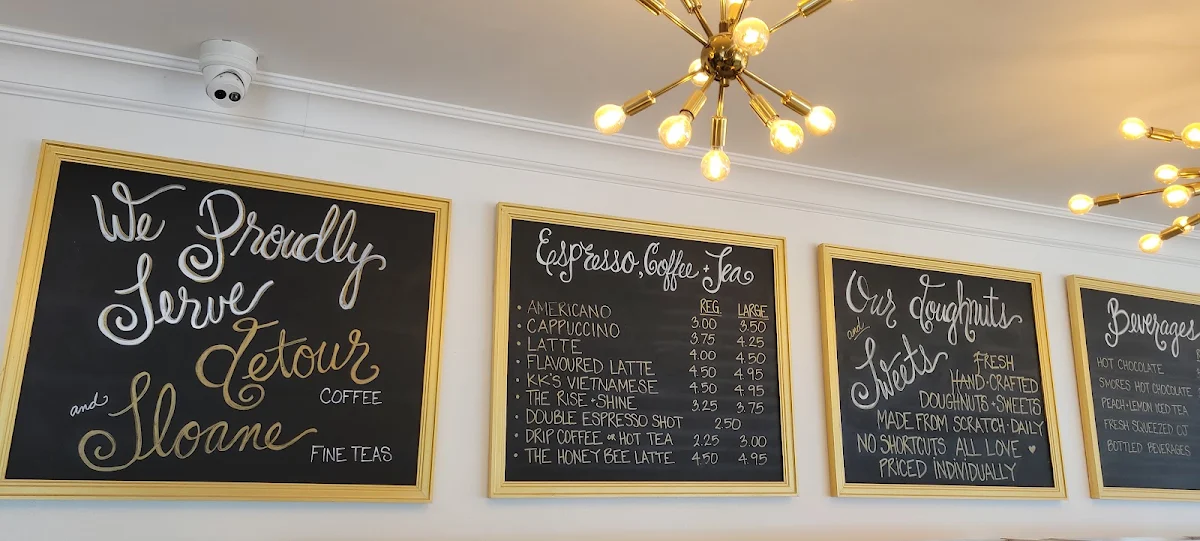 We Proudly
Serve
detour
COFFEE
and Sloane
FINE TEAS
Espresso, Coffee + Tea
REG. LARGE
• AMERICANO 3.00 3.50
• CAPPUCCINO 3.75 4.25
• LATTE 4.00 4.50
• FLAVOURED LATTE 4.50 4.95
• KK'S VIETNAMESE 4.50 4.95
• THE RISE + SHINE 3.25 3.75
• DOUBLE ESPRESSO SHOT 2.50
• DRIP COFFEE OR HOT TEA 2.25 3.00
• THE HONEY BEE LATTE 4.50 4.95
Our doughnuts
and Sweets
FRESH
HAND-CRAFTED
DOUGHNUTS + SWEETS
MADE FROM SCRATCH DAILY
NO SHORTCUTS ALL LOVE ♥
PRICED INDIVIDUALLY
Beverages
HOT CHOCOLATE
S'MORES HOT CHOCOLATE
PEACH + LEMON ICED TEA
FRESH SQUEEZED OJ
BOTTLED BEVERAGES